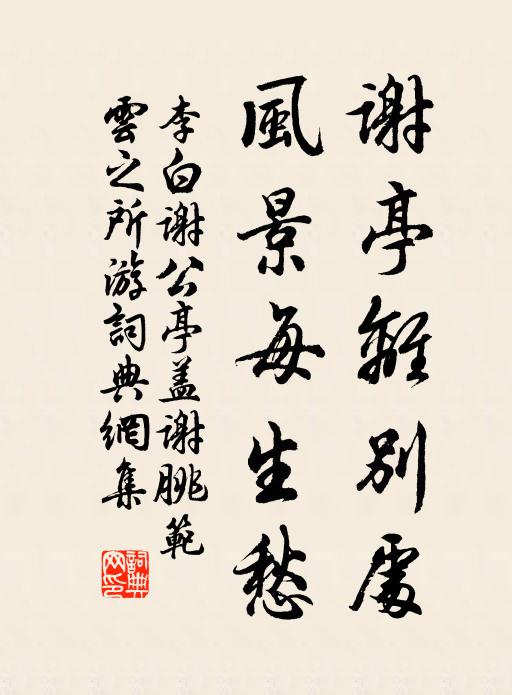 謝亭離別處
風景每生愁
李白謝公亭蓋謝朓範
雲之所游詞典網集
詞典網印